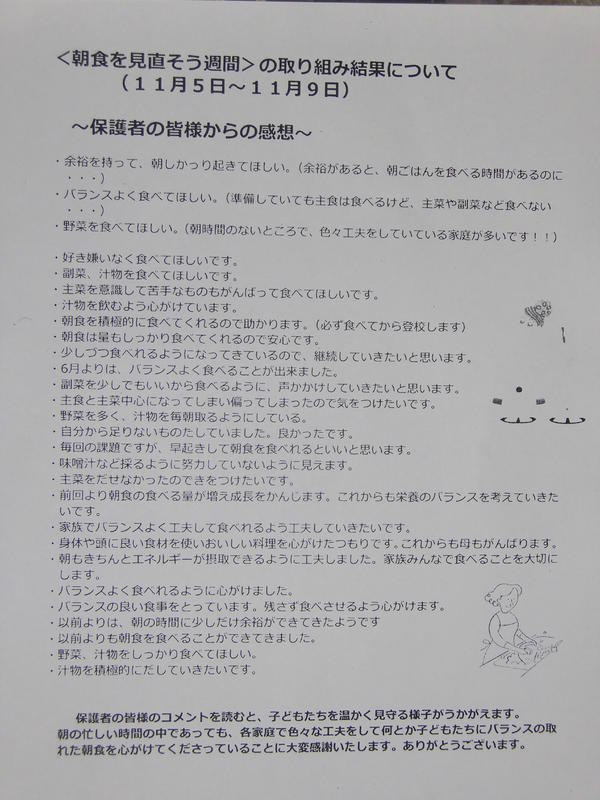 ＜朝食を見直そう週間＞の取り組み結果について
（１１月５日～１１月９日）
～保護者の皆様からの感想～
・余裕を持って、朝しかっり起きてほしい。（余裕があると、朝ごはんを食べる時間があるのに
・・・）
・バランスよく食べてほしい。（準備していても主食は食べるけど、主菜や副菜など食べない
・・・）
・野菜を食べてほしい。（朝時間のないところで、色々工夫をしていている家庭が多いです！！）
・好き嫌いなく食べてほしいです。
・副菜、汁物を食べてほしいです。
・主菜を意識して苦手なものもがんばって食べてほしいです。
・汁物を飲むよう心がけています。
・朝食を積極的に食べてくれるので助かります。（必ず食べてから登校します）
・朝食は量もしっかり食べてくれるので安心です。
・少しづつ食べれるようになってきているので、継続していきたいと思います。
・6月よりは、バランスよく食べることが出来ました。
・副菜を少しでもいいから食べるように、声かかけしていきたいと思います。
・主食と主菜中心になってしまい偏ってしまったので気をつけたいです。
・野菜を多く、汁物を毎朝取るようにしている。
・自分から足りないものたしていました。良かったです。
・毎回の課題ですが、早起きして朝食を食べれるといいと思います。
・味噌汁など採るように努力していないように見えます。
・主菜をだせなかったのできをつけたいです。
・前回より朝食の食べる量が増え成長をかんじます。これからも栄養のバランスを考えていきた
いです。
・家族でバランスよく工夫して食べれるよう工夫していきたいです。
・身体や頭に良い食材を使いおいしい料理を心がけたつもりです。これからも母もがんばります。
・朝もきちんとエネルギーが摂取できるように工夫しました。家族みんなで食べることを大切に
します。
・バランスよく食べれるように心がけました。
・バランスの良い食事をとっています。残さず食べさせるよう心がけます。
・以前よりは、朝の時間に少しだけ余裕ができてきたようです
・以前よりも朝食を食べることができてきました。
・野菜、汁物をしっかり食べてほしい。
・汁物を積極的にだしていきたいです。
保護者の皆様のコメントを読むと、子どもたちを温かく見守る様子がうかがえます。
朝の忙しい時間の中であっても、各家庭で色々な工夫をして何とか子どもたちにバランスの取
れた朝食を心がけてくださっていることに大変感謝いたします。ありがとうございます。